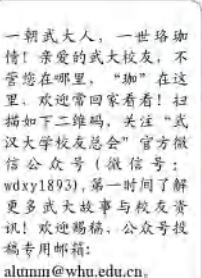 一朝武大人，一世珞珈
情！亲爱的武大校友，不
管您在哪里，“珈”在这
里，欢迎常回家看看！扫
描如下二维码，关注“武
汉大学校友总会”官方微
信公众号（微信号：
wdxy1893），第一时间了解
更多武大故事与校友资
讯！欢迎赐稿，公众号投
稿专用邮箱：
alumni@whu.edu.cn。